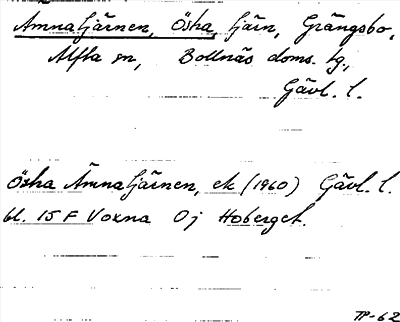 Ämnatjärnen, Östra, tjärn, Grängsbo,
Alfta sn, Bollnäs doms. tg,
Gävl. l.
Östra Ämnatjärnen, ek (1960) Gävl. l.
bl. 15 F Voxna 0j Hoberget.
TP-62